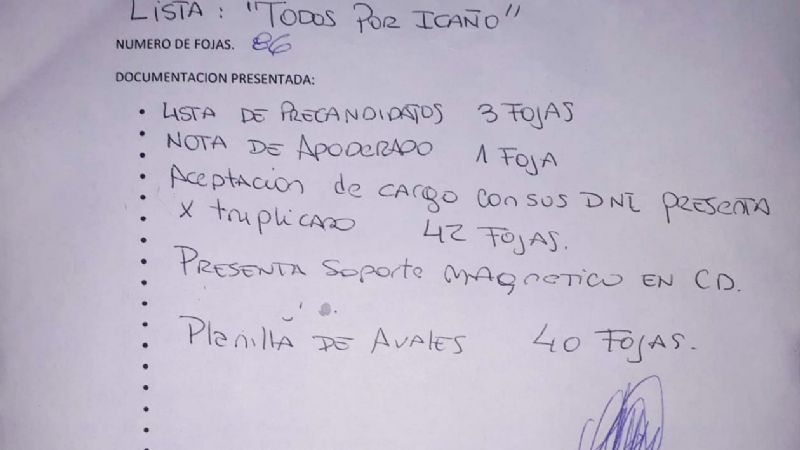 LISTA: "TODOS POR ICAÑO"
NUMERO DE FOJAS. 86
DOCUMENTACION PRESENTADA:
• LISTA DE PRECANDIDATOS 3 FOJAS
• NOTA DE APODERADO 1 FOJA
• ACEPTACION de CARGO CON SUS DNI PRESENTA
• X TRIPLICADO 42 FOJAS.
• PRESENTA SOPORTE MAGNETICO EN CD.
• Planilla DE AVALES 40 FOJAS.